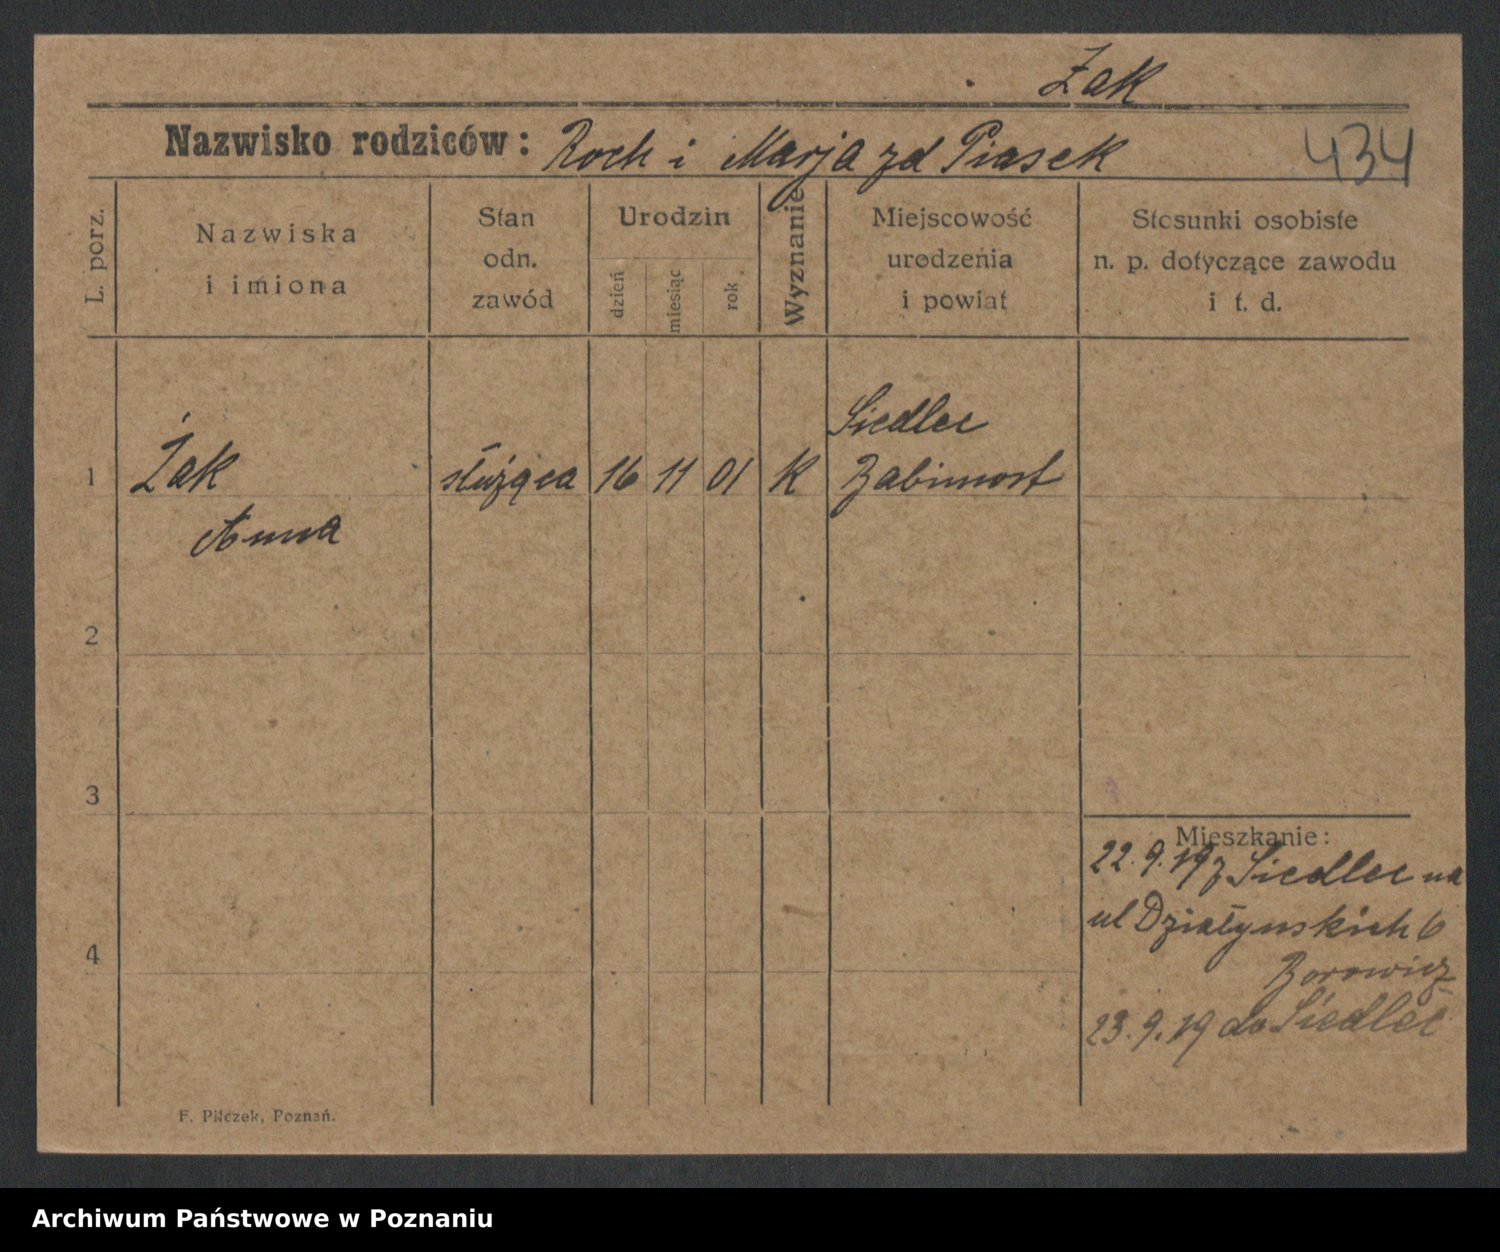 Żak
Nazwisko rodziców: Roch i Marja zd Piasek
434
L. porz.
Nazwiska
i imiona
Stan
odn.
zawód
Urodzin
dzień
miesiąc
rok
Wyznanie
Miejscowość
urodzenia
i powiat
Stosunki osobiste
n. p. dotyczące zawodu
i t. d.
Siedlec
1 Żak służąca 16 11 01 K Babimost
Anna
2
3
Mieszkanie:
22.9.19 z Siedlec na
ul Działynskich 6
4
Borowicz
23.9.19 do Siedlec
F. Pilczek, Poznań.
Archiwum Państwowe w Poznaniu